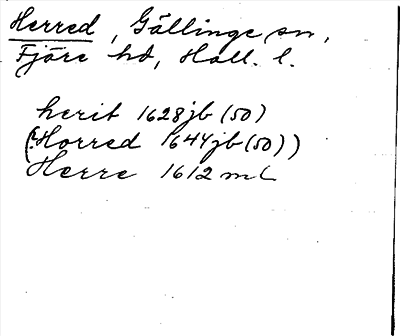 Herred, Gällinge sn,
Fjäre hd, Hall. l.
herit 1628 jb (50)
(?Horred 1644 jb (50))
Herre 1612 ml